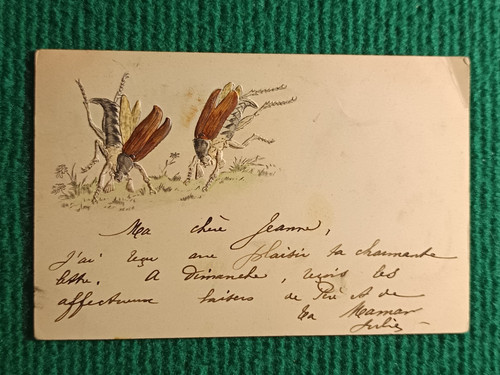 Ma chère Jeanne,
J'ai reçu avec plaisir ta charmante
lettre. A Dimanche, reçois les
affectueux baisers de Père et de
ta Maman
Julie